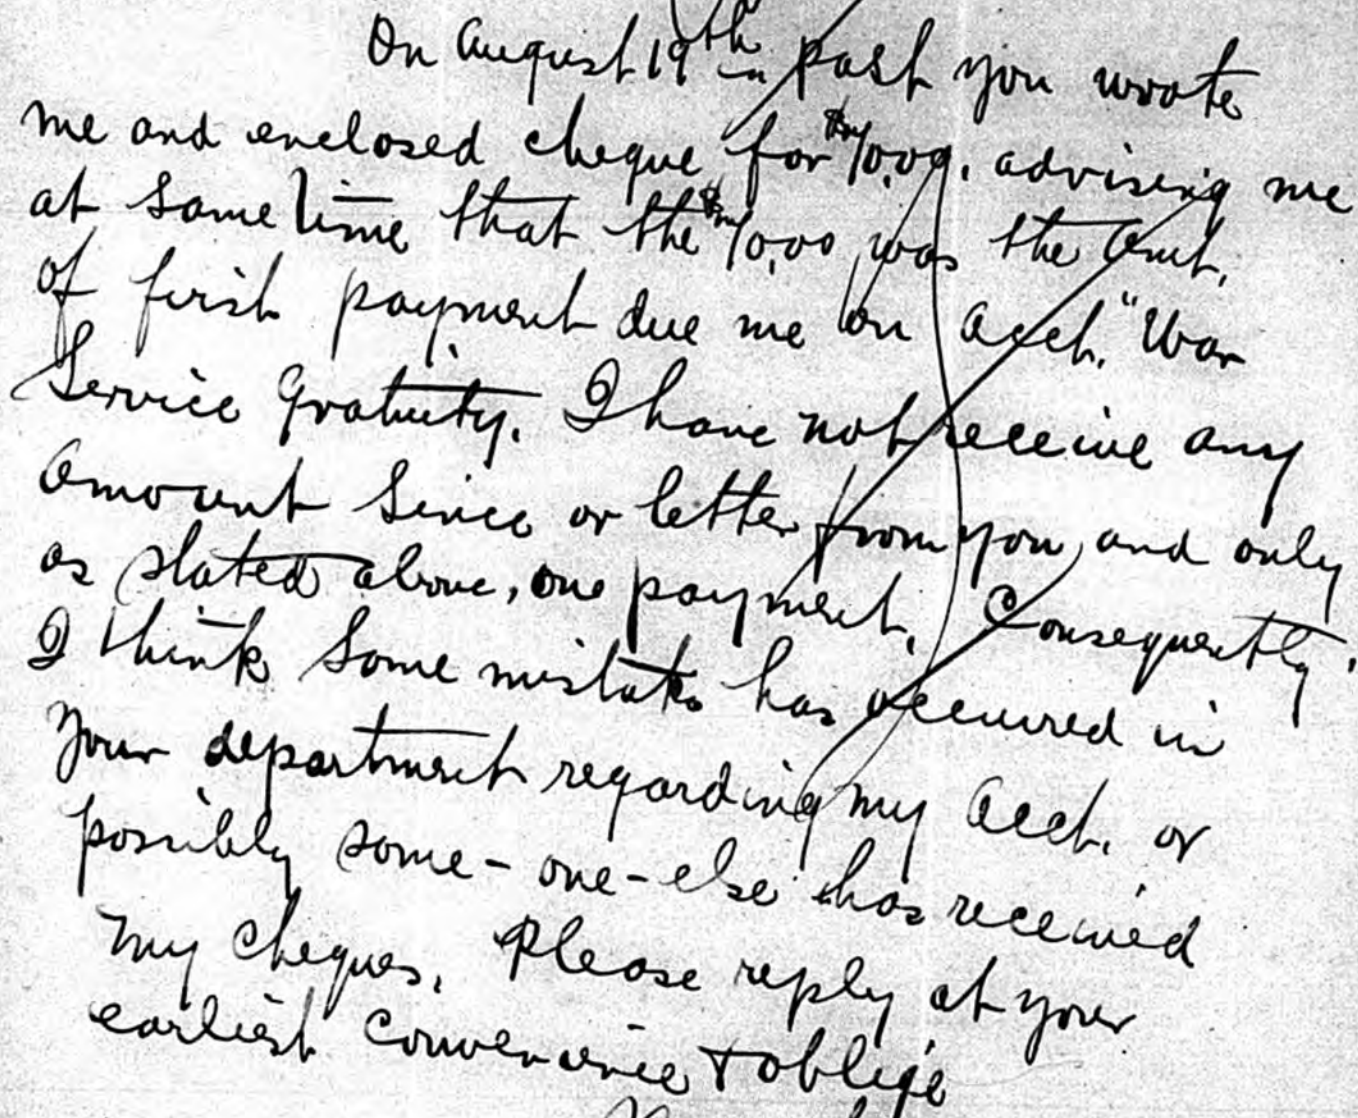 On August 19th past you wrote
me and enclosed cheque for $70.00. advising me
at same time that the $70.00 was the Amt.
of first payment due me on acct. "War
Service Gratuity. I have not receive any
amount since or letter from you, and only
as stated above, one payment. Consequently
I think some mistake has occurred in
your department regarding my acct. or
possibly some-one-else has received
my cheques. Please reply at your
earliest convenience + oblige